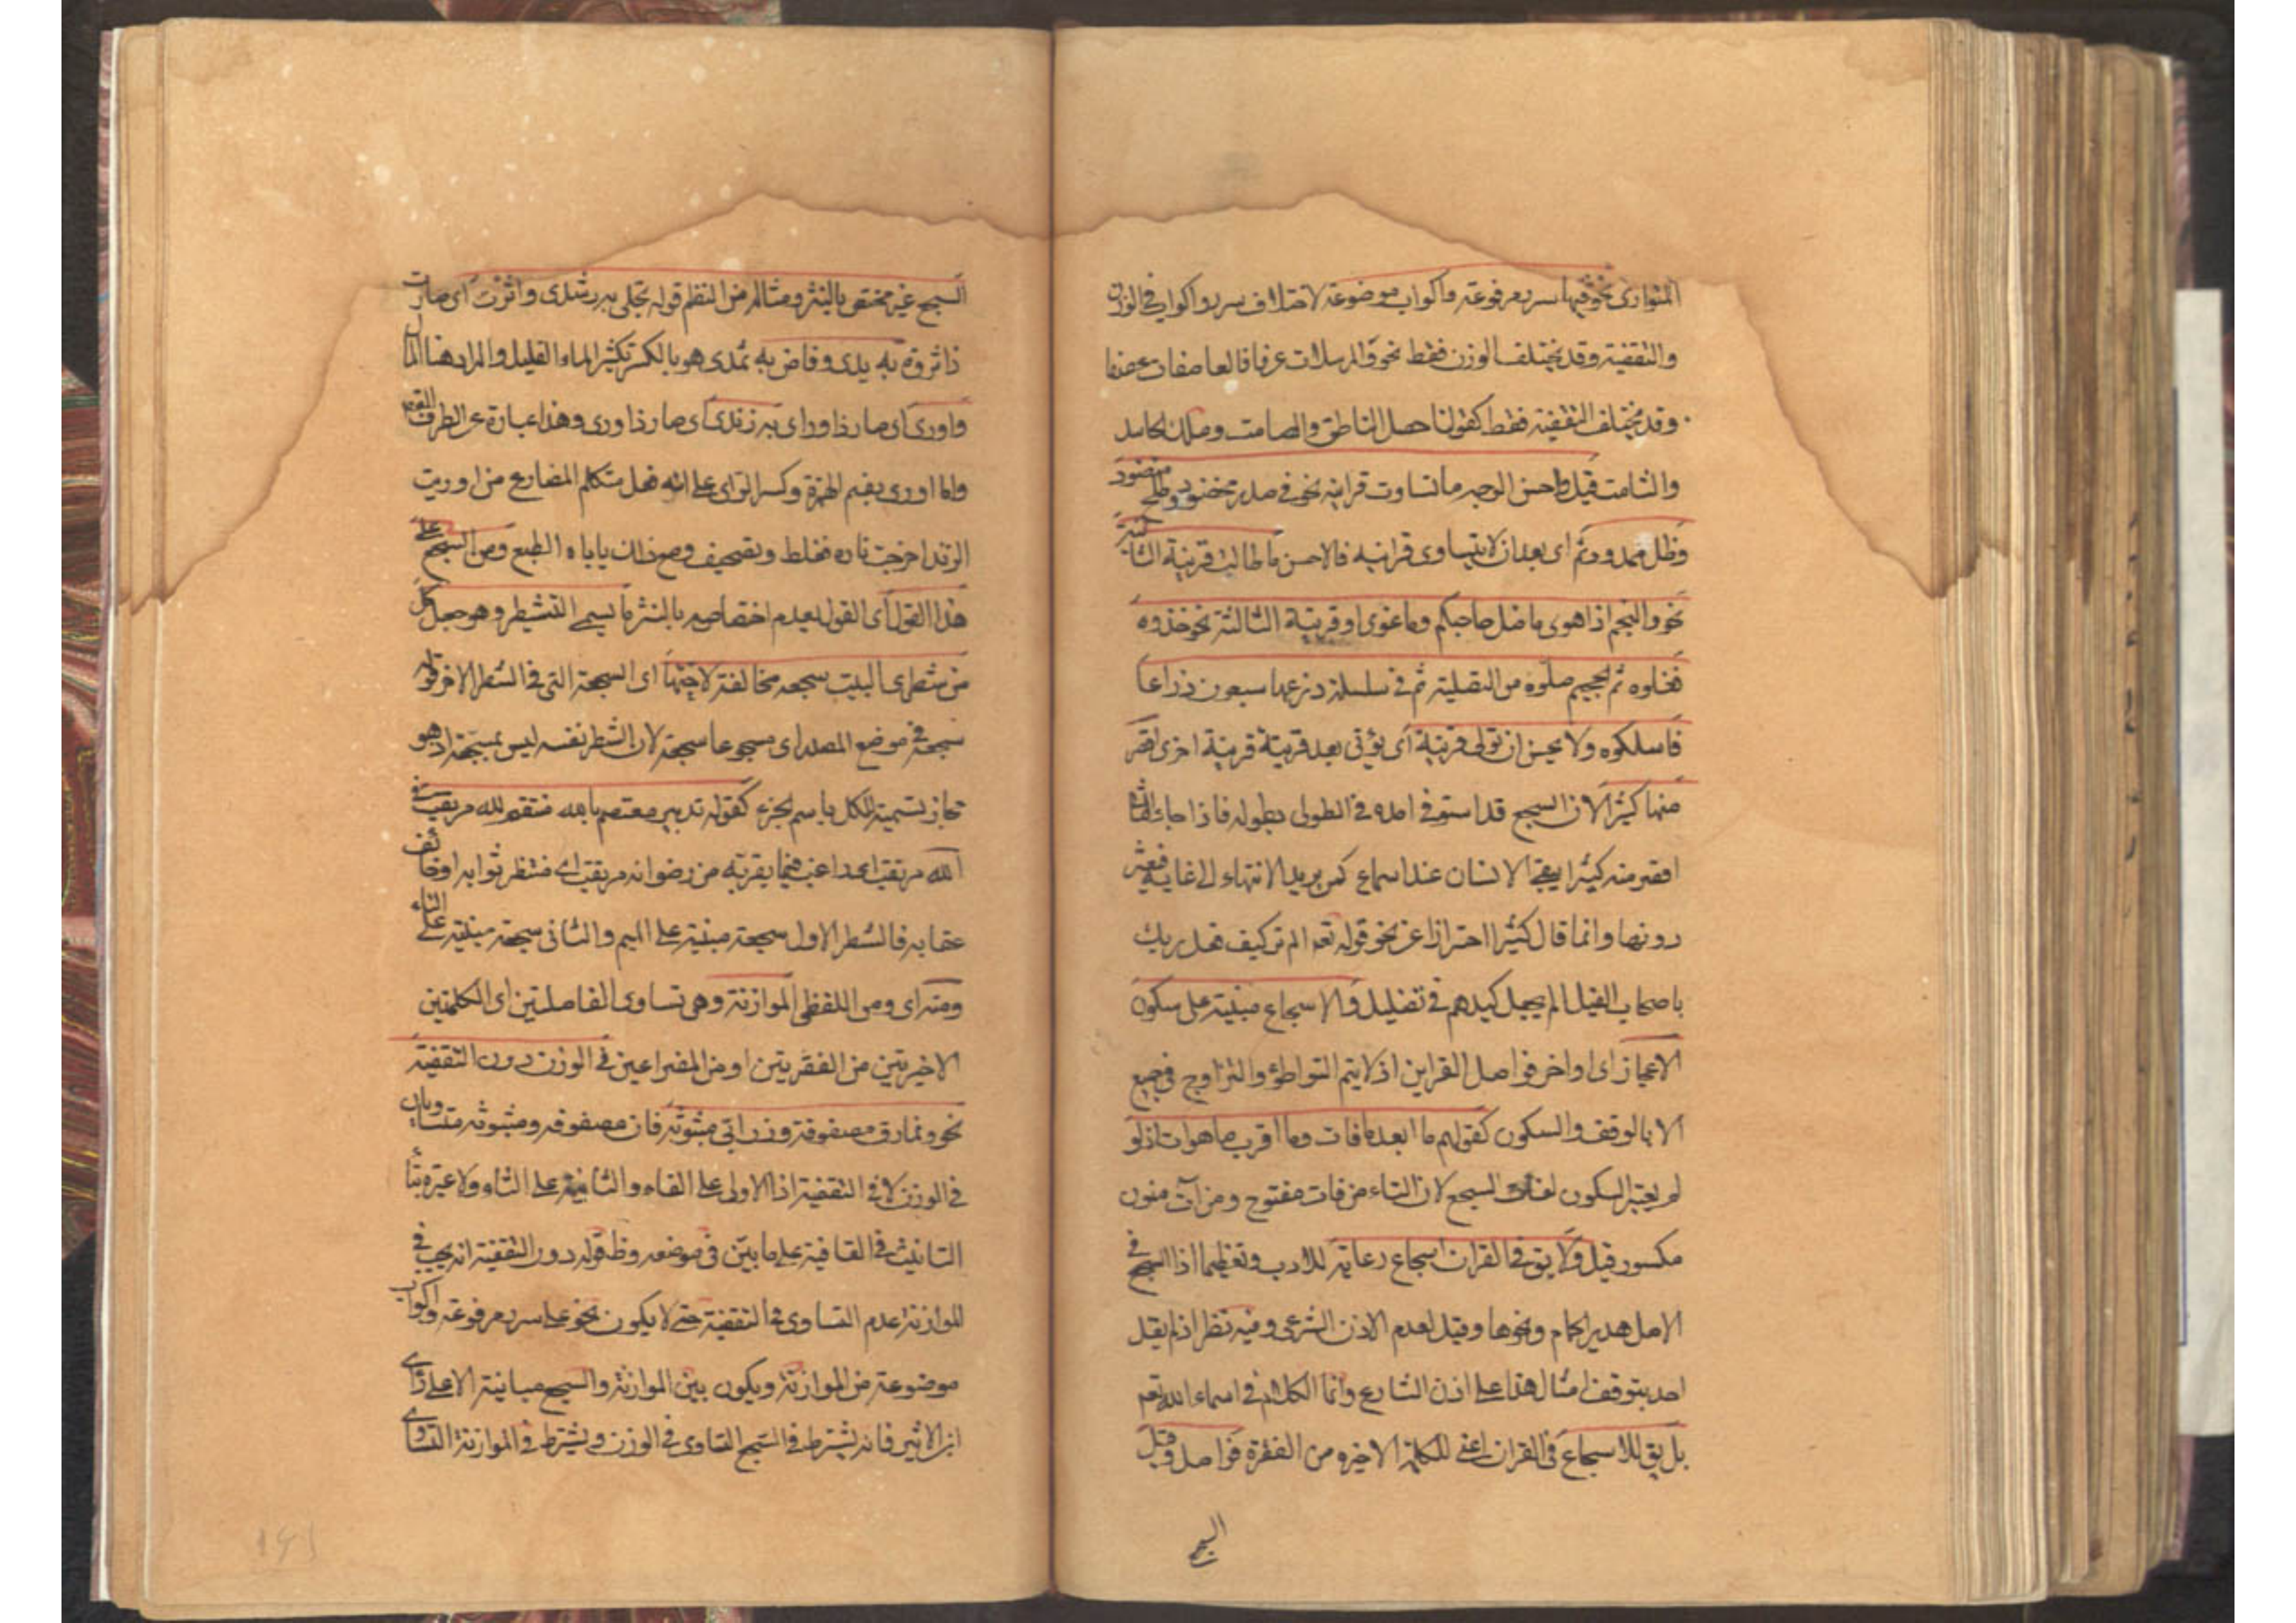 المتوازى نحو فيها سرر مرفوعة واكواب موضوعة لاختلاف سرر واكواب في الوزن
والتقفية وقد يختلف الوزن فقط نحو والمرسلات عرفا فالعاصفات عصفا
وقد يختلف التقفية فقط كقولنا حصل الناطق والصامت وهلك الحاسد
والشامت قيل واحسن الوجه ما تساوت قراينه نحو في سدر مخضود وطلح منضود
وظل ممدود ثم اى بعد ان لا يتساوى قراينه فالاحسن ما طالت قرينة الثانية
نحو والنجم اذا هوى ما ضل صاحبكم وما غوى او قرينة الثالثة نحو خذوه
فغلوه ثم الجحيم صلوه من التصلية ثم في سلسلة ذرعها سبعون ذراعا
فاسلكوه ولا يحسن ان تولى قرينة اى يؤتى بعد قرينة قرينة اخرى اقصر
منها كثيرا لان السجع قد استوفى امده في الطول بطوله فاذا جاء الثانى
اقصر منه كثيرا يبقى الانسان عند سماعه كمن يريد الانتهاء الى غاية فيعثر
دونها وانما قال كثيرا احترازا عن نحو قوله تعم الم تر كيف فعل ربك
باصحاب الفيل الم يجعل كيدهم في تضليل والاسجاع مبنية على سكون
الاعجاز اى اواخر فواصل القراين اذ لا يتم التواطؤ والتزاوج في جميع
الا بالوقف والسكون كقولهم ما ابعد ما فات وما اقرب ما هو ات اذ لو
لم يعتبر السكون لفات السجع لان التاء من فات مفتوح ومن آت منون
مكسور قيل ولا يق في القران اسجاع رعاية للادب وتعظيما اذ السجع في
الاصل هدير الحمام ونحوها وقيل لعدم الاذن الشرعى وفيه نظر اذ لم يقل
احد بتوقف امثال هذا على اذن الشارع وانما الكلام في اسماء الله تعم
بل يق للاسجاع في القران اعنى للكلمة الاخيرة من الفقرة فواصل وقيل
السجع
السجع غير مختص بالنثر ومثاله من النظم قوله تجلى به رشدى واثرت اى صارت
ذا ثروة به يدى وفاض به ثمدى هو بالكسر تكثير الماء القليل والمراد هنا المال
واورى اى صار ذا ورى به زندى اى صار ذا ورى وهذا عبارة عن الظرف
واما اورى بضم الهمزة وكسر الراى على انه فعل متكلم المضارع من اوريت
الزند اخرجت ناره فغلط وتصحيف ومع ذلك ياباه الطبع ومن السجع على
هذا القول اى القول بعدم اختصاصه بالنثر ما يسمى التشطير وهو جعل كل
من شطرى البيت سجعة مخالفة لاختها اى السجعة التى في الشطر الاخر قوله
سجعة في موضع المصدر اى مسجوعا سجعة لان الشطر نفسه ليس بسجعة او هو
مجاز تسمية للكل باسم الجزء كقوله تدبير معتصم بالله منتقم لله مرتغب في
الله مرتقب اى راغب فيما يقربه من رضوانه مرتقب اى منتظر ثوابه او خائف
عقابه فالشطر الاول سجعة مبنية على الميم والثانى سجعة مبنية على الباء
ومنه اى ومن اللفظى الموازنة وهى تساوى الفاصلتين اى الكلمتين
الاخيرتين من الفقرتين او من المصراعين في الوزن دون التقفية
نحو ونمارق مصفوفة وزرابى مبثوثة فان مصفوفة ومبثوثة متساويان
في الوزن لا في التقفية اذ الاولى على الفاء والثانية على الثاء ولا عبرة بتاء
التانيث في القافية على ما بين في موضعه وظ قوله دون التقفية انه يجب في
الموازنة عدم التساوى في التقفية حتى لا يكون نحو عليا سرر مرفوعة واكواب
موضوعة من الموازنة ويكون بين الموازنة والسجع مباينة الا على راى
ابن الاثير فانه يشترط في السجع التساوى في الوزن ويشترط في الموازنة التساوى